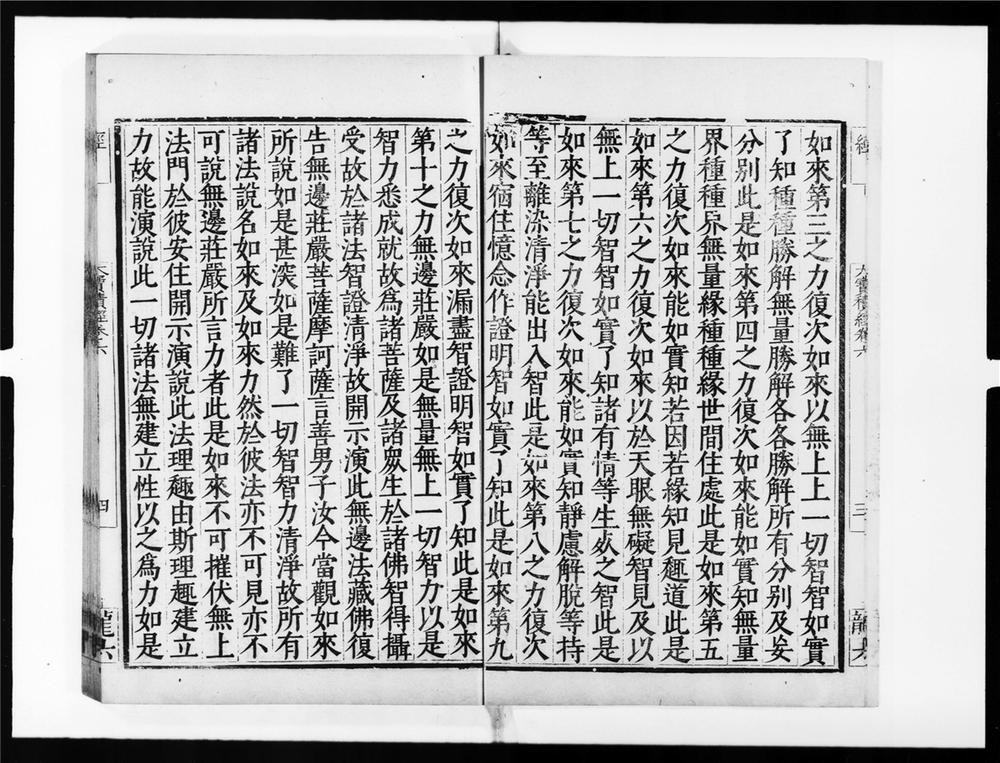 如來第三之力復次如來以無上上一切智智如實
了知種種勝解無量勝解各各勝解所有分別及妄
分別此是如來第四之力復次如來能如實知無量
界種種界無量緣種種緣世間住處此是如來第五
之力復次如來能如實知若因若緣知見趣道此是
如來第六之力復次如來以於天眼無礙智見及以
無上一切智智如實了知諸有情等生死之智此是
如來第七之力復次如來能如實知靜慮解脫等持
等至離染清淨能出入智此是如來第八之力復次
如來宿住憶念作證明智如實了知此是如來第九
之力復次如來漏盡智證明智如實了知此是如來
第十之力無邊莊嚴如是無量無上一切智力以是
智力悉成就故為諸菩薩及諸眾生於諸佛智得攝
受故於諸法智證清淨故開示演此無邊法藏佛復
告無邊莊嚴菩薩摩訶薩言善男子汝今當觀如來
所說如是甚深如是難了一切智智力清淨故所有
諸法說名如來及如來力然於彼法亦不可見亦不
可說無邊莊嚴所言力者此是如來不可摧伏無上
法門於彼安住開示演說此法理趣由斯理趣建立
力故能演說此一切諸法無建立性以之為力如是
經
大寶積經卷六
三
龍六
經
大寶積經卷六
四
龍六